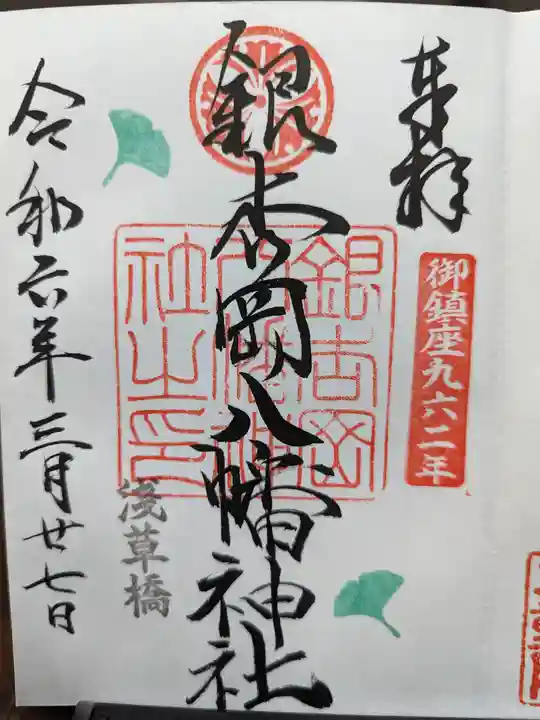 奉拝
御鎮座九六二年
銀杏岡八幡神社
銀杏岡八幡神社之印
浅草橋
令和六年三月廿七日